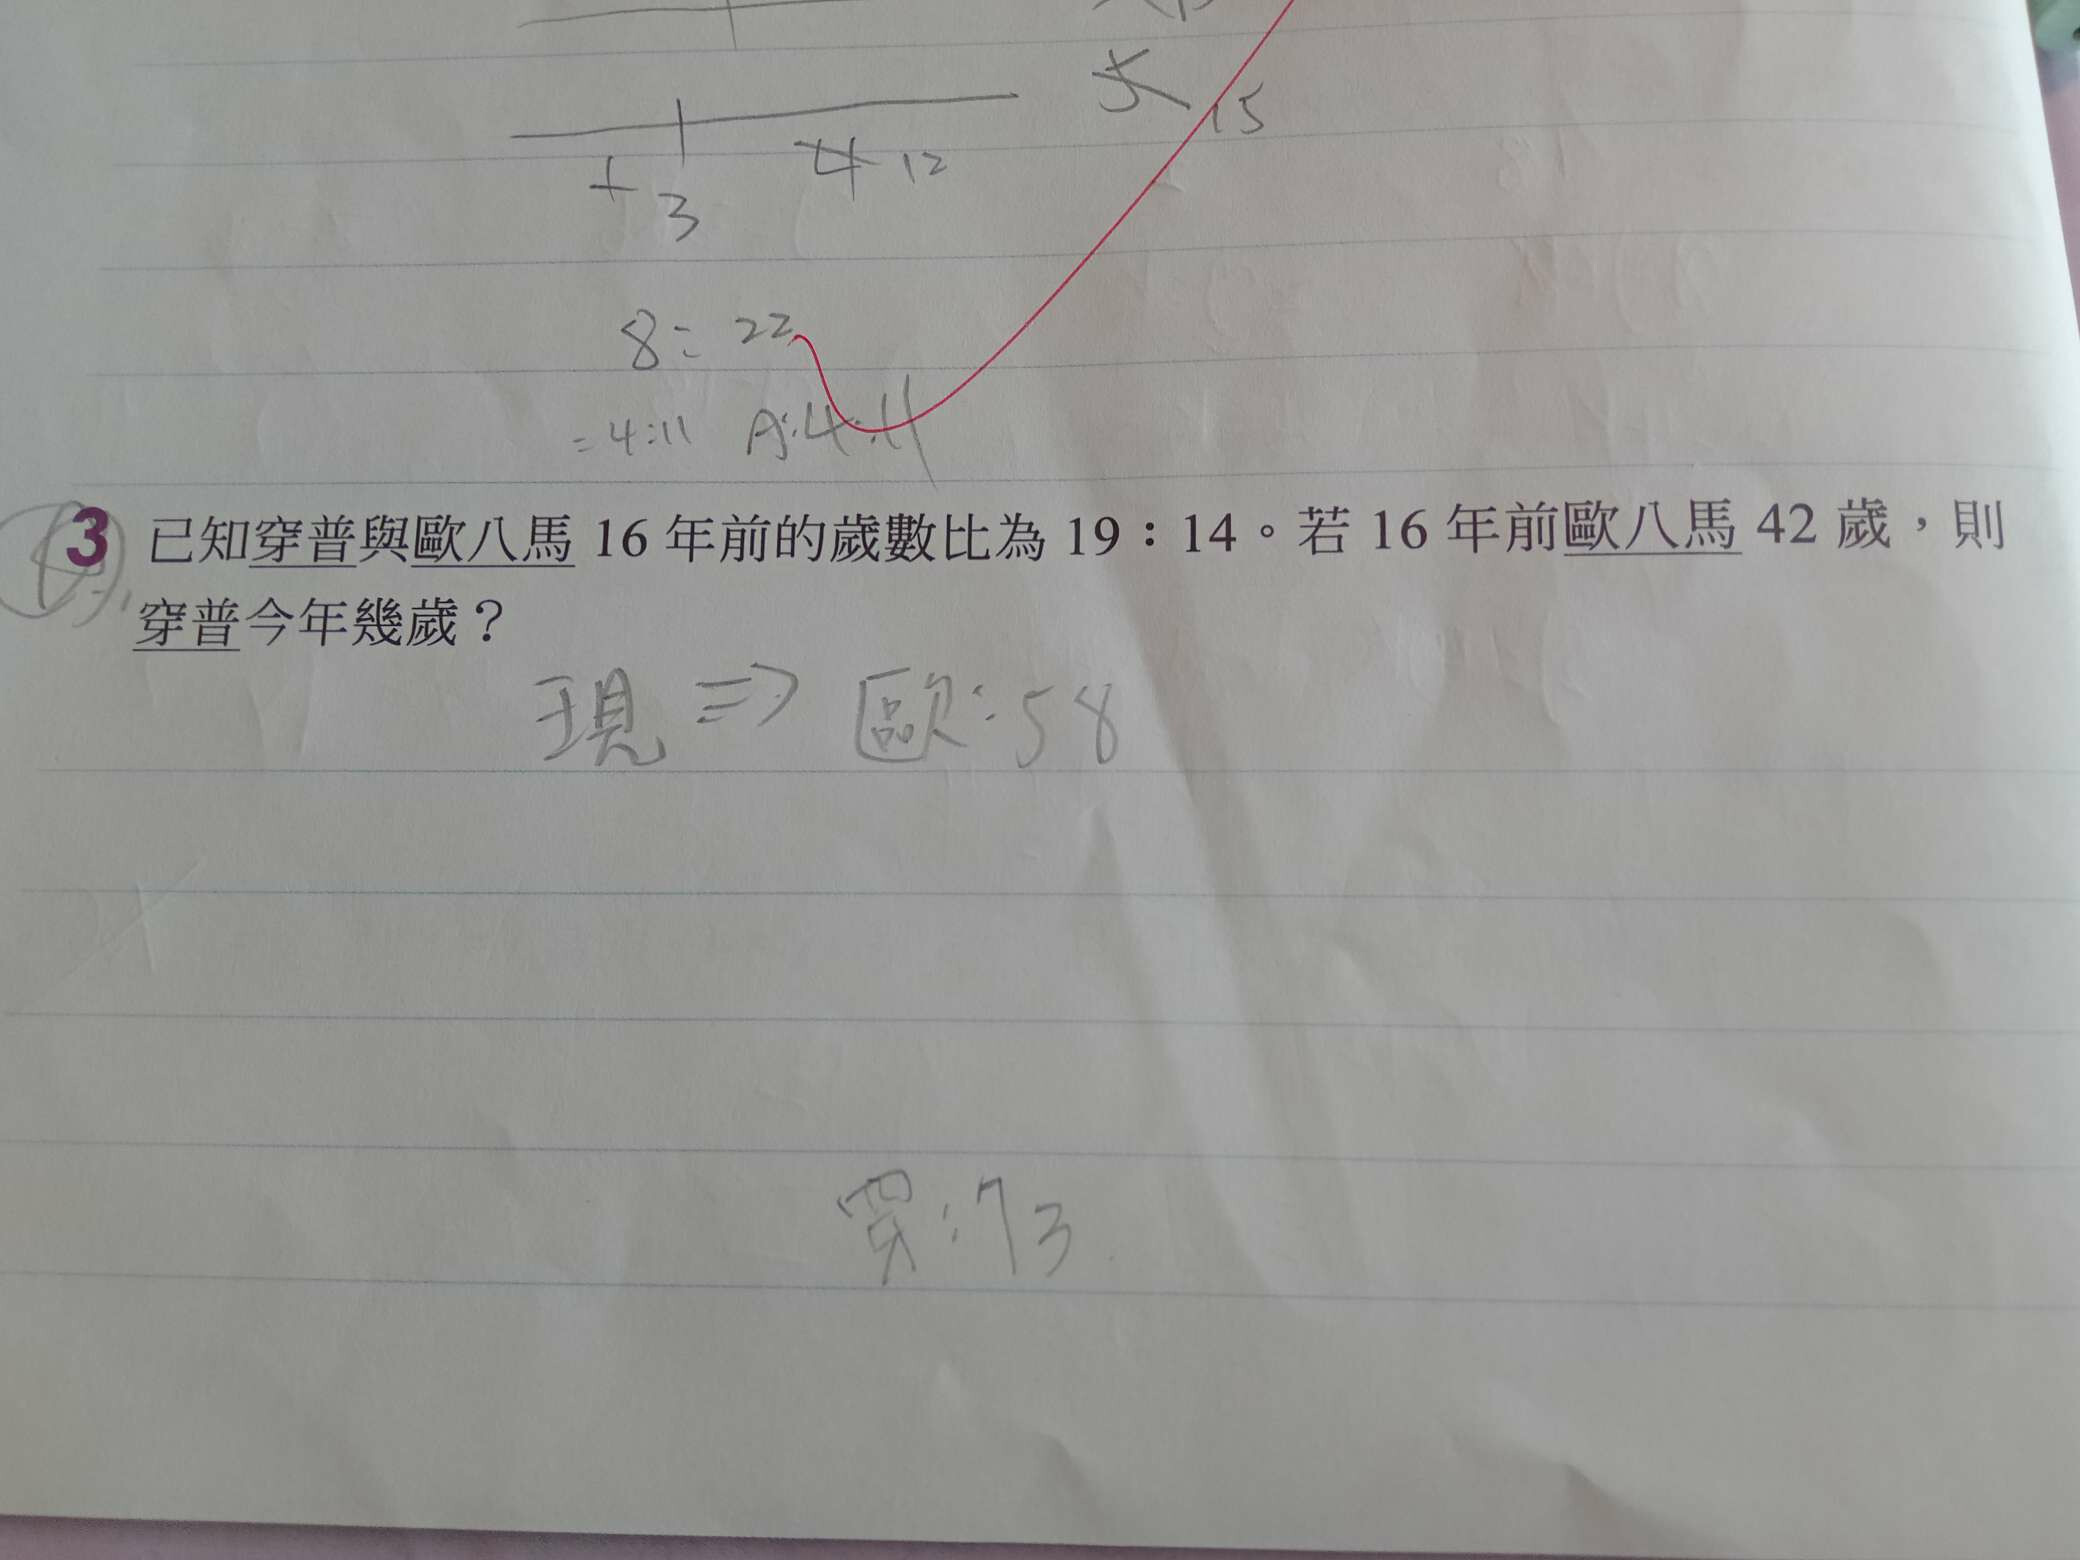 5 15
+3 4 12
8:22
=4:11 A:4:11
3 已知穿普與歐八馬 16 年前的歲數比為 19:14。若 16 年前歐八馬 42 歲,則
穿普今年幾歲?
現 => 歐:58
穿:73